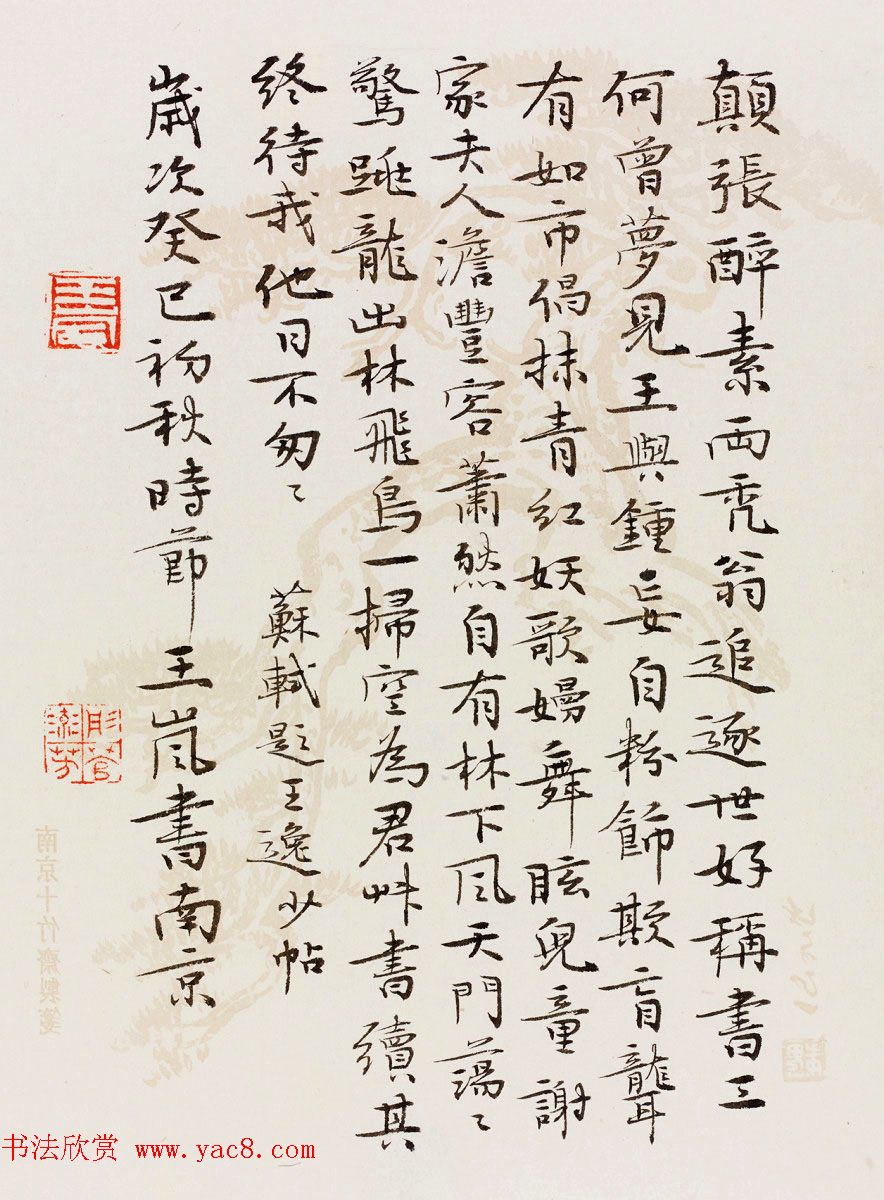 顛張醉素兩禿翁追逐世好稱書工
何曾夢見王與鍾妄自粉飾欺盲聾
有如市倡抹青紅妖歌嫚舞眩兒童謝
家夫人澹豐容蕭然自有林下風天門蕩々
驚跳龍出林飛鳥一掃空為君草書續其
終待我他日不匆々 蘇軾題王逸少帖
歲次癸巳初秋時節王嵐書南京
南京十竹齋製箋
书法欣赏 www.yac8.com